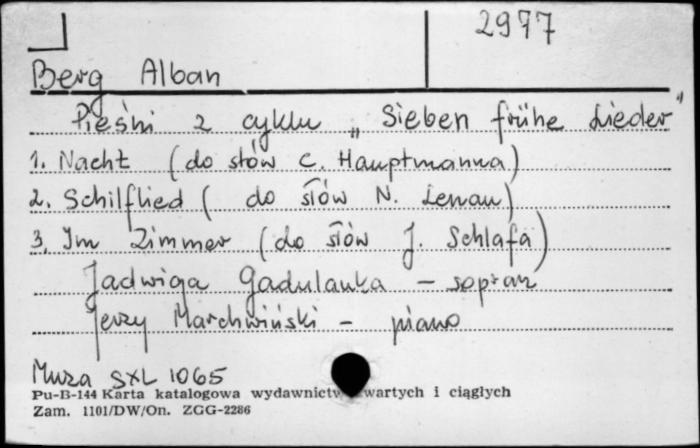 2977
Berg Alban
Pieśni z cyklu „Sieben frühe Lieder"
1. Nacht (do słów C. Hauptmanna)
2. Schilflied ( do słów N. Lenau)
3. Im Zimmer (do słów J. Schlafa)
Jadwiga Gadulanka – sopran
Jerzy Marchwiński – piano
Muza SXL 1065
Pu-B-144 Karta katalogowa wydawnictw zwartych i ciągłych
Zam. 1101/DW/On. ZGG-2286